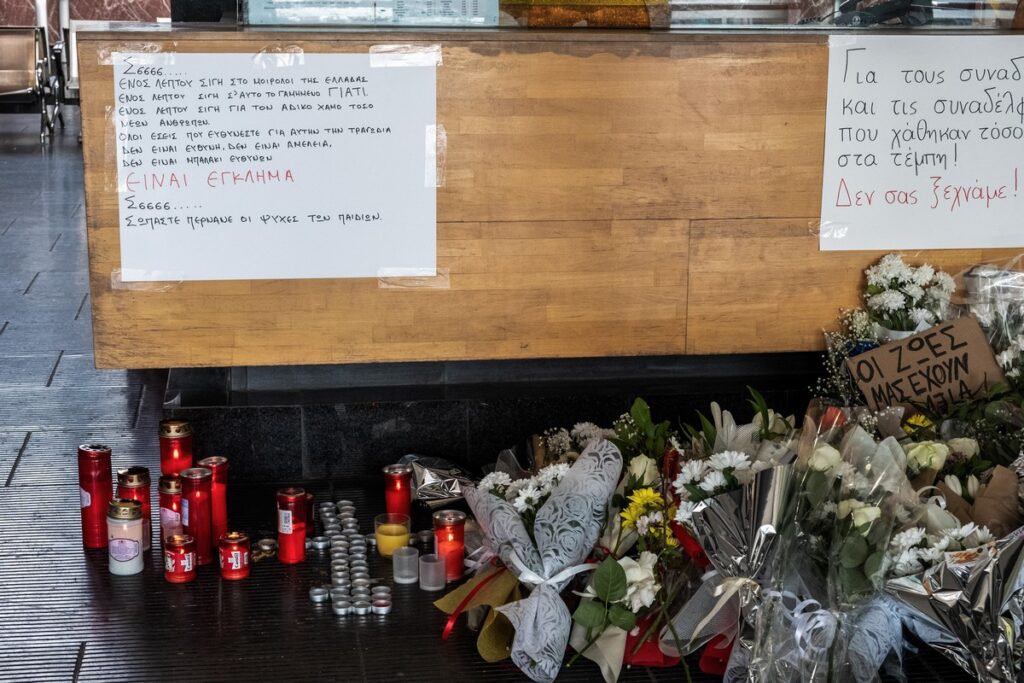 Σςςςς.....
ΕΝΟΣ ΛΕΠΤΟΥ ΣΙΓΗ ΣΤΟ ΜΟΙΡΟΛΟΙ ΤΗΣ ΕΛΛΑΔΑΣ
ΕΝΟΣ ΛΕΠΤΟΥ ΣΙΓΗ Σ'ΑΥΤΟ ΤΟ ΓΑΜΗΜΕΝΟ ΓΙΑΤΙ.
ΕΝΟΣ ΛΕΠΤΟΥ ΣΙΓΗ ΓΙΑ ΤΟΝ ΑΔΙΚΟ ΧΑΜΟ ΤΟΣΟ
ΝΕΩΝ ΑΝΘΡΩΠΩΝ.
ΟΛΟΙ ΕΣΕΙΣ ΠΟΥ ΕΥΘΥΝΕΣΤΕ ΓΙΑ ΑΥΤΗΝ ΤΗΝ ΤΡΑΓΩΔΙΑ
ΔΕΝ ΕΙΝΑΙ ΕΥΘΥΝΗ, ΔΕΝ ΕΙΝΑΙ ΑΜΕΛΕΙΑ,
ΔΕΝ ΕΙΝΑΙ ΜΠΑΛΑΚΙ ΕΥΘΥΝΩΝ
ΕΙΝΑΙ ΕΓΚΛΗΜΑ
Σςςςς.....
ΣΩΠΑΣΤΕ ΠΕΡΝΑΝΕ ΟΙ ΨΥΧΕΣ ΤΩΝ ΠΑΙΔΙΩΝ.
Για τους συναδ
και τις συναδέλφ
που χάθηκαν τόσο
στα τέμπη!
Δεν σας ξεχνάμε!
ΟΙ ΖΩΕΣ
ΜΑΣ ΕΧΟΥΝ
ΑΞΙΑ